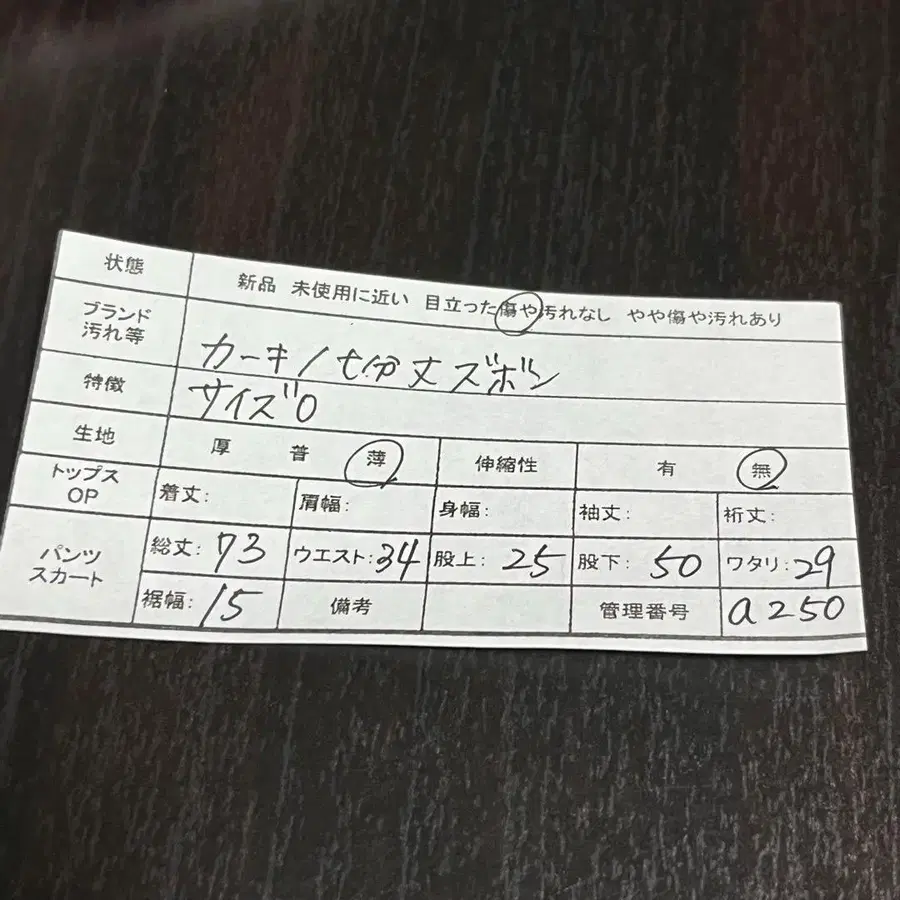 状態 新品 未使用に近い 目立った傷や汚れなし やや傷や汚れあり
ブランド
汚れ等
カーキ/七分丈ズボン
特徴 サイズ0
生地 厚 普 薄 伸縮性 有 無
トップス
OP
着丈: 肩幅: 身幅: 袖丈: 裄丈:
パンツ
スカート
総丈:73 ウエスト:34 股上:25 股下:50 ワタリ:29
裾幅:15 備考 管理番号 a250